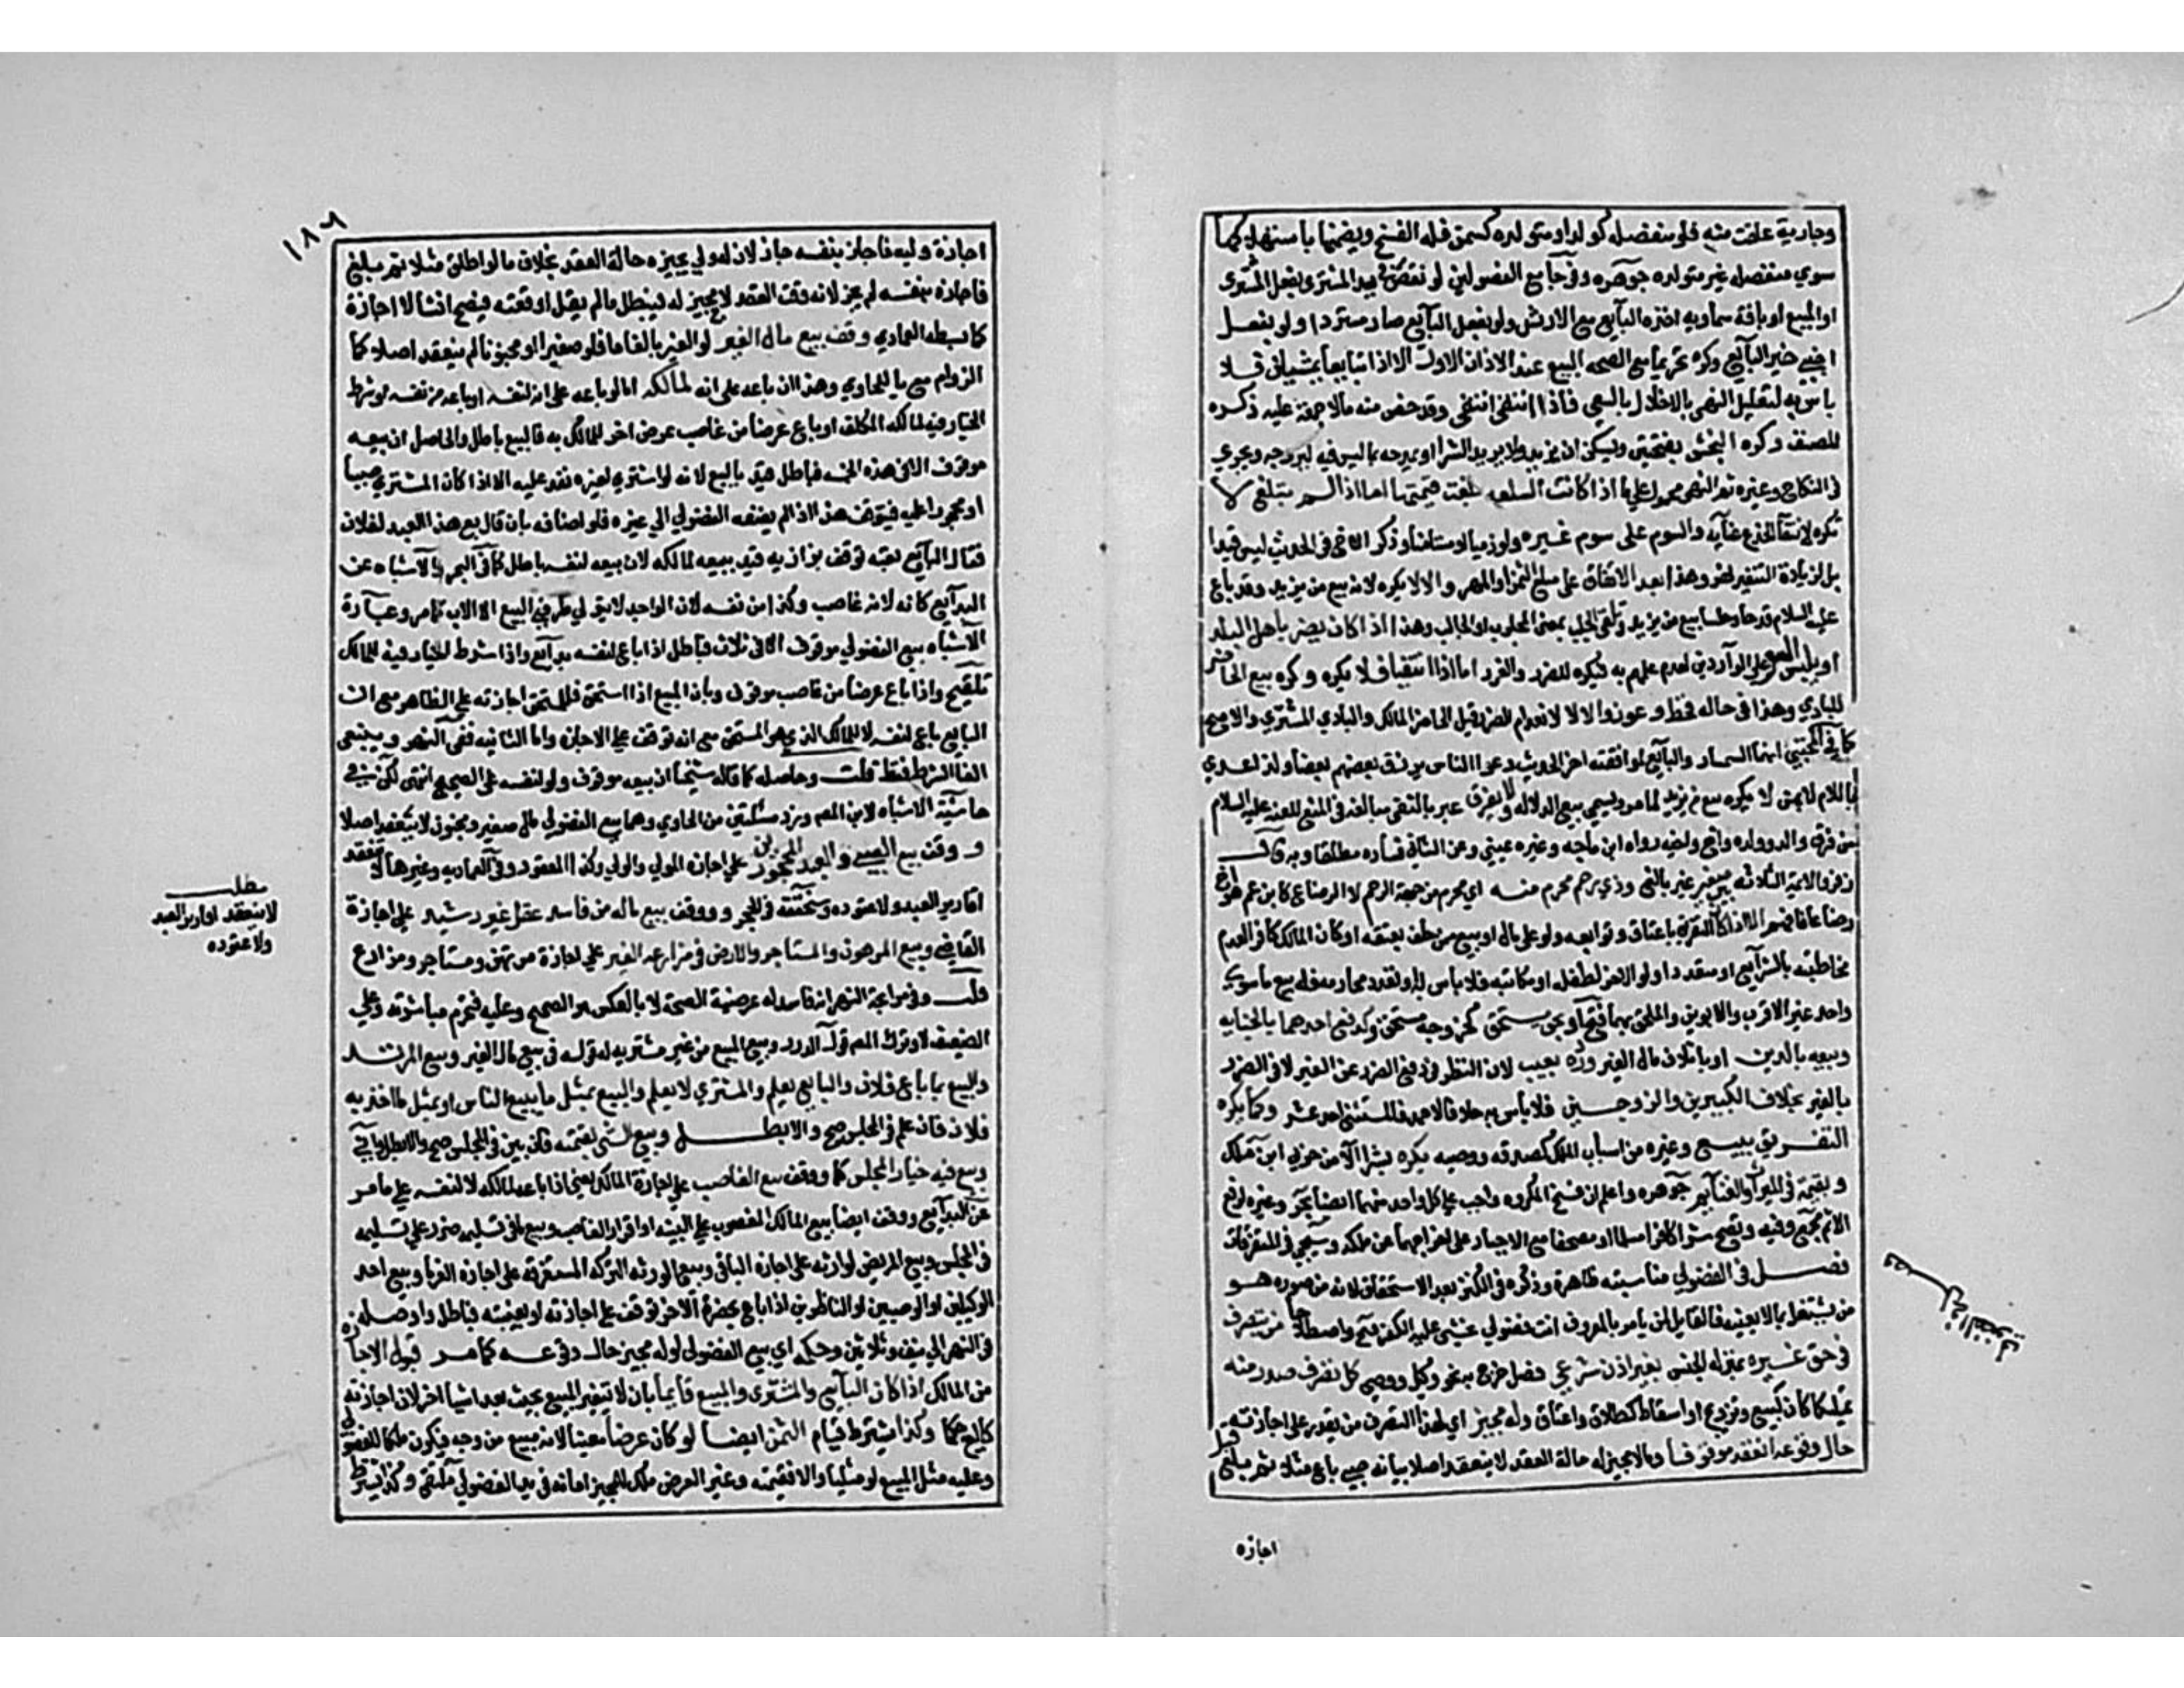 وجارية علقت منه فلو منفصله كولد او متولده كسمن فله الفسخ ويضمنها باستهلاكها
سوي منفصله غير متولده جوهره وفي جامع الفصولين لو نقص في يد المشتري بفعل المشتري
او المبيع او بافة سماويه اخذه البائع مع الارش ولو بفعل البائع صار مستردا ولو بفعل
اجنبي خير البائع وكره تحريما مع الصحه البيع عند الاذان الاول الا اذا تبايعا يمشيان فلا
باس به لتعليل النهي بالاخلال بالسعي فاذا انتفى انتفى وقد خص منه من لا جمعة عليه ذكره
المصنف وكره النجش بفتحتين ويسكن ان يزيد ولا يريد الشرا او يمدحه بما ليس فيه ليروجه ويجري
في النكاح وغيره ثم النهي محمول علي ما اذا كانت السلعه بلغت قيمتها اما اذا لم تبلغ لا
يكره لانتفا الخداع عنايه والسوم على سوم غيره ولو ذميا او مستامنا وذكر الاخ في الحديث ليس قيدا
بل لزيادة التنفير نهر وهذا بعد الاتفاق على مبلغ الثمن او المهر والا لا يكره لانه بيع من يزيد وقد باع
عليه السلام قدحا وحلسا ببيع من يزيد وتلقي الجلب بمعنى المجلوب او الجالب وهذا اذا كان يضر باهل البلد
او يلبس السعر على الواردين لعدم علمهم به فيكره للضرر والغرر اما اذا انتفيا فلا يكره وكره بيع الحاضر
للبادي وهذا في حاله قحط وعوز والا لا لانعدام الضرر قيل الحاضر المالك والبادي المشتري والاصح
كما في المجتبي انهما السمسار والبائع لموافقته اخر الحديث دعوا الناس يرزق بعضهم بعضا ولذا عدي
باللام لا بمن لا يكره بيع من يزيد لما مر ويسمي بيع الدلاله ولا يفرق عبر بالنفي مبالغة في المنع للعنه عليه السلام
من فرق والد وولده واخ واخيه رواه ابن ماجه وغيره عيني وعن الثاني فساده مطلقا وبه قال
زفر والائمة الثلاثه بين صغير غير بالغ وذي رحم محرم منه اي محرم من جهة الرحم لا الرضاع كابن عم هو اخ
رضاعا فافهم الا اذا كان التفريق باعتاق وتوابعه ولو على مال او بيع ممن حلف بعتقه او كان المالك كافرا لعدم
مخاطبته بالشرائع او متعددا ولو الاخر لطفله او مكاتبه فلا باس به او تعدد محارمه فله بيع ما سوي
واحد غير الاقرب والابوين والملحق بهما فتح او بحق مستحق كخروجه مستحقا وكدفع احدهما بالجنايه
وبيعه بالدين او باتلاف مال الغير ورده بعيب لان النظر في دفع الضرر عن الغير لا في الضرر
بالغير بخلاف الكبيرين والزوجين فلا باس به خلافا لاحمد فالمستثنى احد عشر وكما يكره
التفريق ببيع وغيره من اسباب الملك كصدقه ووصيه يكره بشرا الا من حربي ابن ملك
وبقسمة في الميراث والغنائم جوهره واعلم ان فسخ المكروه واجب على كل واحد منهما ايضا بحر وغيره لرفع
الاثم مجمع وفيه وتصح شرا كافر مسلما او مصحفا مع الاجبار على اخراجهما عن ملكه وسيجي في المتفرقات
فصل في الفضولي مناسبته ظاهرة وذكره في الكنز بعد الاستحقاق لانه من صوره هو
من يشتغل بما لا يعنيه فالقايل لمن يامر بالمعروف انت فضولي يخشى عليه الكفر فتح واصطلاحا من يتصرف
في حق غيره بمنزله الجنس بغير اذن شرعي فصل خرج به نحو وكيل ووصي كل تصرف صدر منه
تمليكا كان كبيع وتزويج او اسقاط كطلاق واعتاق وله مجيز اي لهذا التصرف من يقدر على اجازته
حال وقوعه انعقد موقوفا وما لا مجيز له حالة العقد لا ينعقد اصلا بيانه صبي باع مثلا ثم بلغ قبل
اجازه
فصل في الفضولي
١٨٢
اجازة وليه فاجازه بنفسه جاز لان له ولي يجيزه حالة العقد بخلاف ما لو اطلق مثلا ثم بلغ
فاجازه بنفسه لم يجز لانه وقت العقد لا مجيز له فيبطل ما لم يقل اوقعته فيصح انشا لا اجازة
كما بسطه العمادي وقف بيع مال الغير لو الغير بالغا عاقلا فلو صغيرا او مجنونا لم ينعقد اصلا كما
في الزواهر معزيا للحاوي وهذا ان باعه على انه لمالكه اما لو باعه على انه لنفسه او باعه من نفسه او شرط
الخيار فيه لمالكه المكلف او باع عرضا من غاصب عرض اخر للمالك به فالبيع باطل والحاصل ان بيعه
موقوف الا في هذه الخمسه فباطل قيد بالبيع لانه لو اشتري لغيره نفذ عليه الا اذا كان المشتري صبيا
او محجورا عليه فيتوقف هذا اذا لم يضفه الفضولي الي غيره فلو اضافه بان قال بع هذا العبد لفلان
فقال البائع بعته توقف بزازيه قيد ببيعه لمالكه لان بيعه لنفسه باطل كما في البحر والاشباه عن
البدائع كانه لانه غاصب وكذا من نفسه لان الواحد لا يتولي طرفي البيع الا الاب كما مر وعبارة
الاشباه بيع الفضولي موقوف الا في ثلاث فباطل اذا باع لنفسه بدائع واذا شرط الخيار فيه للمالك
تلقيح واذا باع عرضا من غاصب موقوف وبان المبيع اذا استحق فللمستحق اجازته على الظاهر مع ان
البايع باع لنفسه لا للمالك الذي هو المستحق مع انه توقف على الاجازه واما الثانيه ففي النهر وينبغي
الغا الشرط فقط قلت وحاصله كما قاله شيخنا ان بيعه موقوف ولو لنفسه على الصحيح انتهى لكن في
حاشية الاشباه لابن المص ويزد مسئلتين من الحاوي وهما بيع الفضولي مال صغير ومجنون لا ينعقد اصلا
و وقف بيع الصبي والعبد المحجورين علي اجازة المولي والولي وكذا المعتوه وفي العماديه وغيرها لا تنعقد
اقارير العبد ولا عقوده وسنحققه في الحجر و وقف بيع ماله من فاسد عقل غير رشيد علي اجازة
القاضي وبيع المرهون والمستاجر والارض في مزارعه الغير علي اجازة مرتهن ومستاجر ومزارع
مطلب
لا تنعقد اقارير العبد
ولا عقوده
قلت وفي مرابحة النهر انه فاسد له عرضية الصحة لا بالعكس هو الصحيح وعليه فتحرم مباشرته وعلي
الضعيف لا وترك المص قول الدرر وبيع المبيع من غير مشتريه لدخوله في بيع مال الغير وبيع المرتد
والبيع بما باع فلان والبايع يعلم والمشتري لا يعلم والبيع بمثل ما يبيع الناس او بمثل ما اخذ به
فلان فان علم في المجلس صح والا بطل وبيع الشي بقيمته فان بين في المجلس صح والا بطل
وبيع فيه خيار المجلس كما ووقف بيع الغاصب علي اجازة المالك يعني اذا باعه لمالكه لا لنفسه علي ما مر
عن البدائع ووقف ايضا بيع المالك المغصوب علي البينه او اقرار الغاصب وبيع ما في تسليمه ضرر علي تسليمه
في المجلس وبيع المريض لوارثه علي اجازه الباقي وبيع الورثه التركه المستغرقه علي اجازه الغرما وبيع احد
الوكيلين او الوصيين او الناظرين اذا باع بحضرة الاخر توقف علي اجازته او بغيبته فباطل واوصله
في النهر الي نيف وثلاثين وحكمه اي بيع الفضولي لو له مجيز حال وقوعه كما مر قبول الاجازه
من المالك اذا كان البائع والمشتري والمبيع قايما بان لا يتغير المبيع بحيث يعد شيا اخر لان اجازته
كالبيع حكما وكذا يشترط قيام الثمن ايضا لو كان عرضا معينا لانه مبيع من وجه فيكون ملكا للفضولي
وعليه مثل المبيع لو مثليا والا فقيمته وغير العرض ملك للمجيز امانه في يد الفضولي ملتقي وكذا يشترط